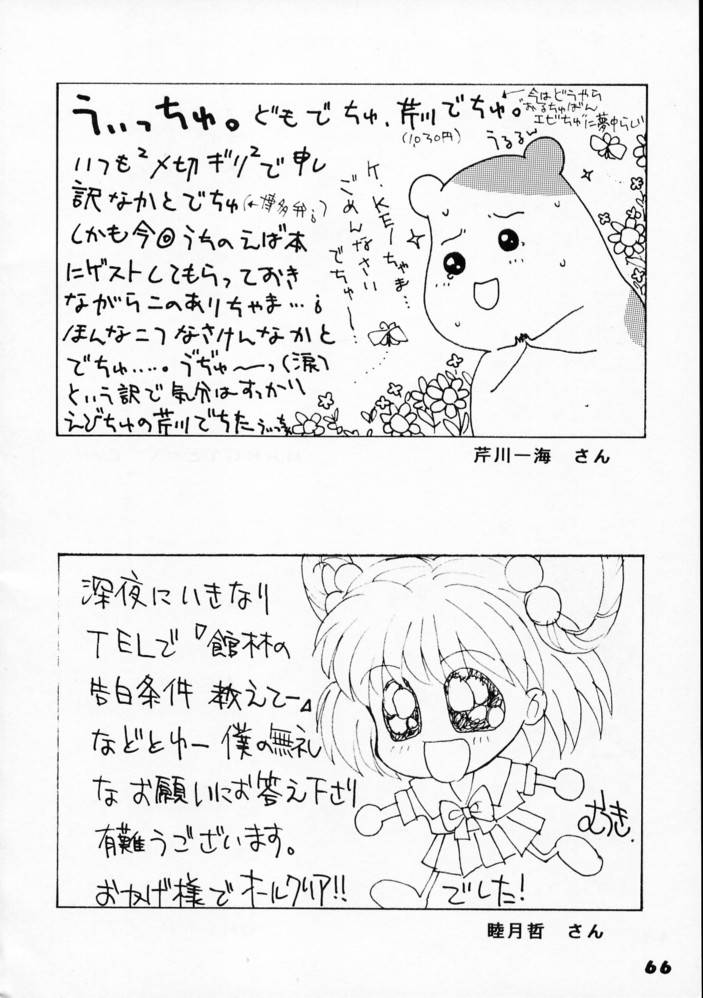 うぃっちゅ。どもでちゅ、芹川でちゅ。
(1030円)
←今はどうやら
おるちゅばん
エビちゅに夢中らしい
うるるん
いつも²〆切ギリ²で申し
訳なかとでちゅ(←博多弁。)
しかも今回うちのえば本
にゲストしてもらっておき
ながらこのありちゃま…。
ほんなこつなさけんなかと
でちゅ….。うぢゅ〜っ(涙)
という訳で気分はすっかり
えびちゅの芹川でちたぅぃっちゅ
K.KEIちゃま…
ごめんなさい
でちゅ〜…
芹川一海　さん
深夜にいきなり
TELで『館林の
告白条件 教えてー』
などとゆー 僕の無礼
な お願いにお答え下さり
有難うございます。
おかげ様で オールクリア!!　でした!
むつき.
睦月哲　さん
66